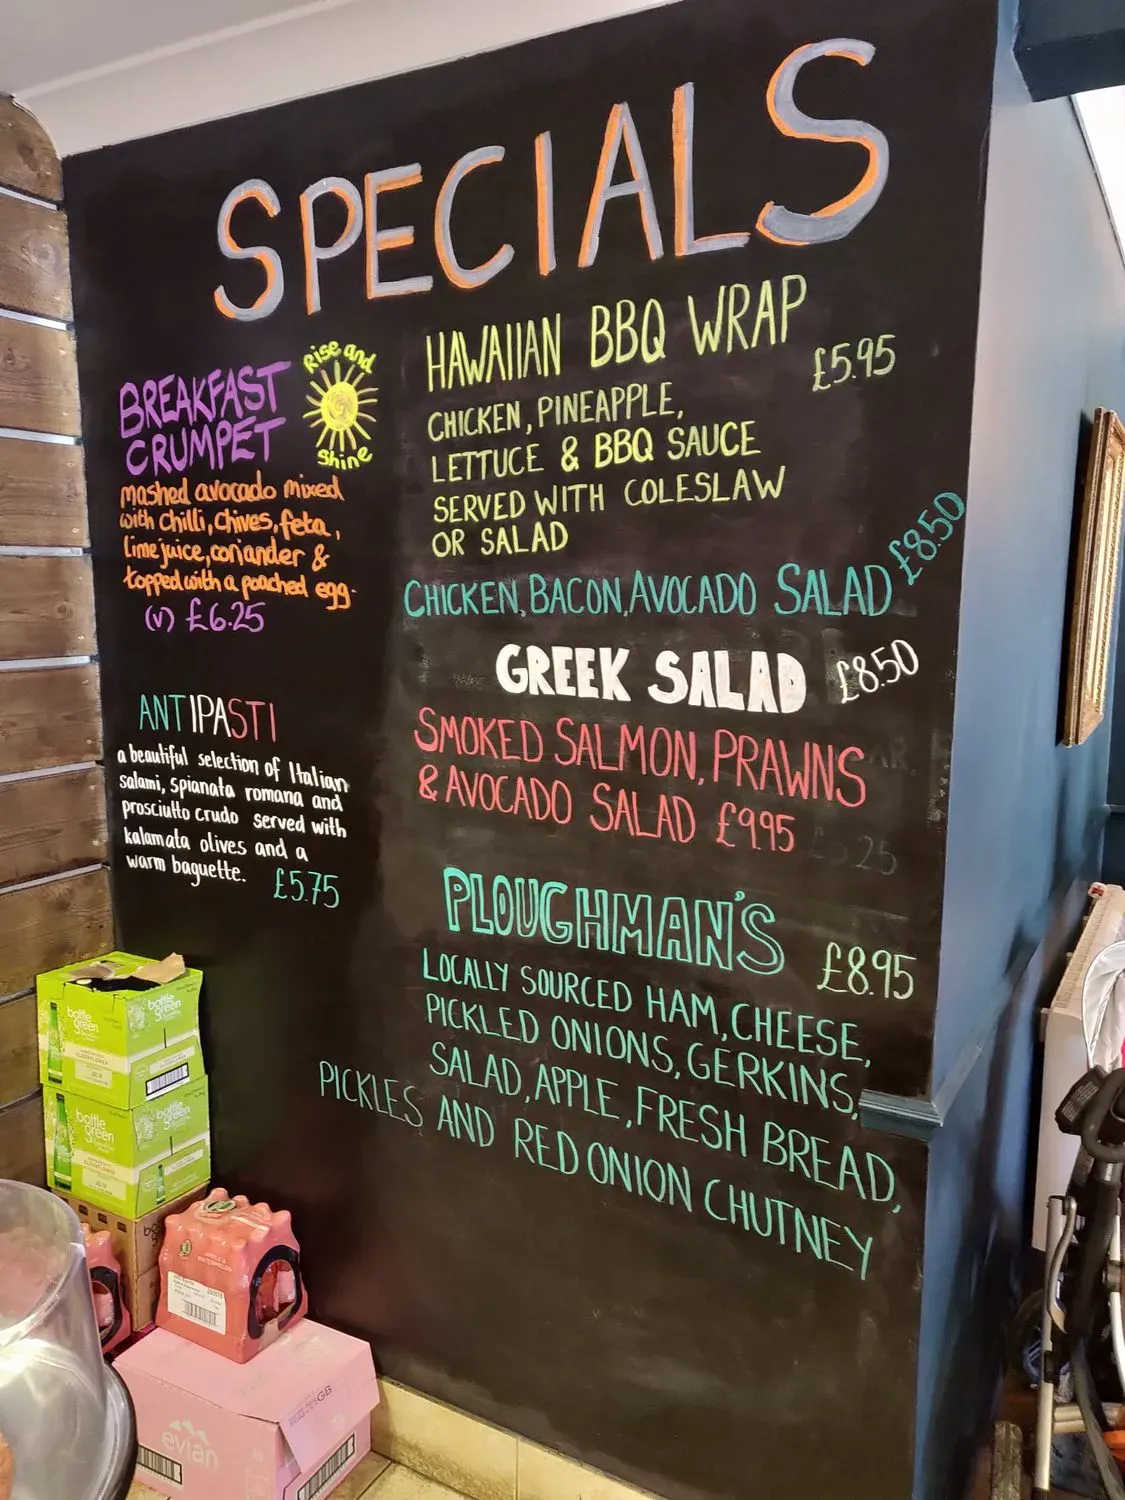 SPECIALS
BREAKFAST
CRUMPET
Rise and
Shine
mashed avocado mixed
with chilli, chives, feta,
lime juice, coriander &
topped with a poached egg.
(v) £6.25
ANTIPASTI
a beautiful selection of Italian
salami, spianata romana and
prosciutto crudo served with
kalamata olives and a
warm baguette.
£5.75
HAWAIIAN BBQ WRAP
£5.95
CHICKEN, PINEAPPLE,
LETTUCE & BBQ SAUCE
SERVED WITH COLESLAW
OR SALAD
CHICKEN, BACON, AVOCADO SALAD £8.50
GREEK SALAD £8.50
SMOKED SALMON, PRAWNS
& AVOCADO SALAD £9.95
PLOUGHMAN'S
£8.95
LOCALLY SOURCED HAM, CHEESE,
PICKLED ONIONS, GERKINS,
SALAD, APPLE, FRESH BREAD,
PICKLES AND RED ONION CHUTNEY
bottle
green
bottle
green
ELDERFLOWER
bottle
green
bottle
green
ELDERFLOWER
APPLE &
WATERMELON
evian